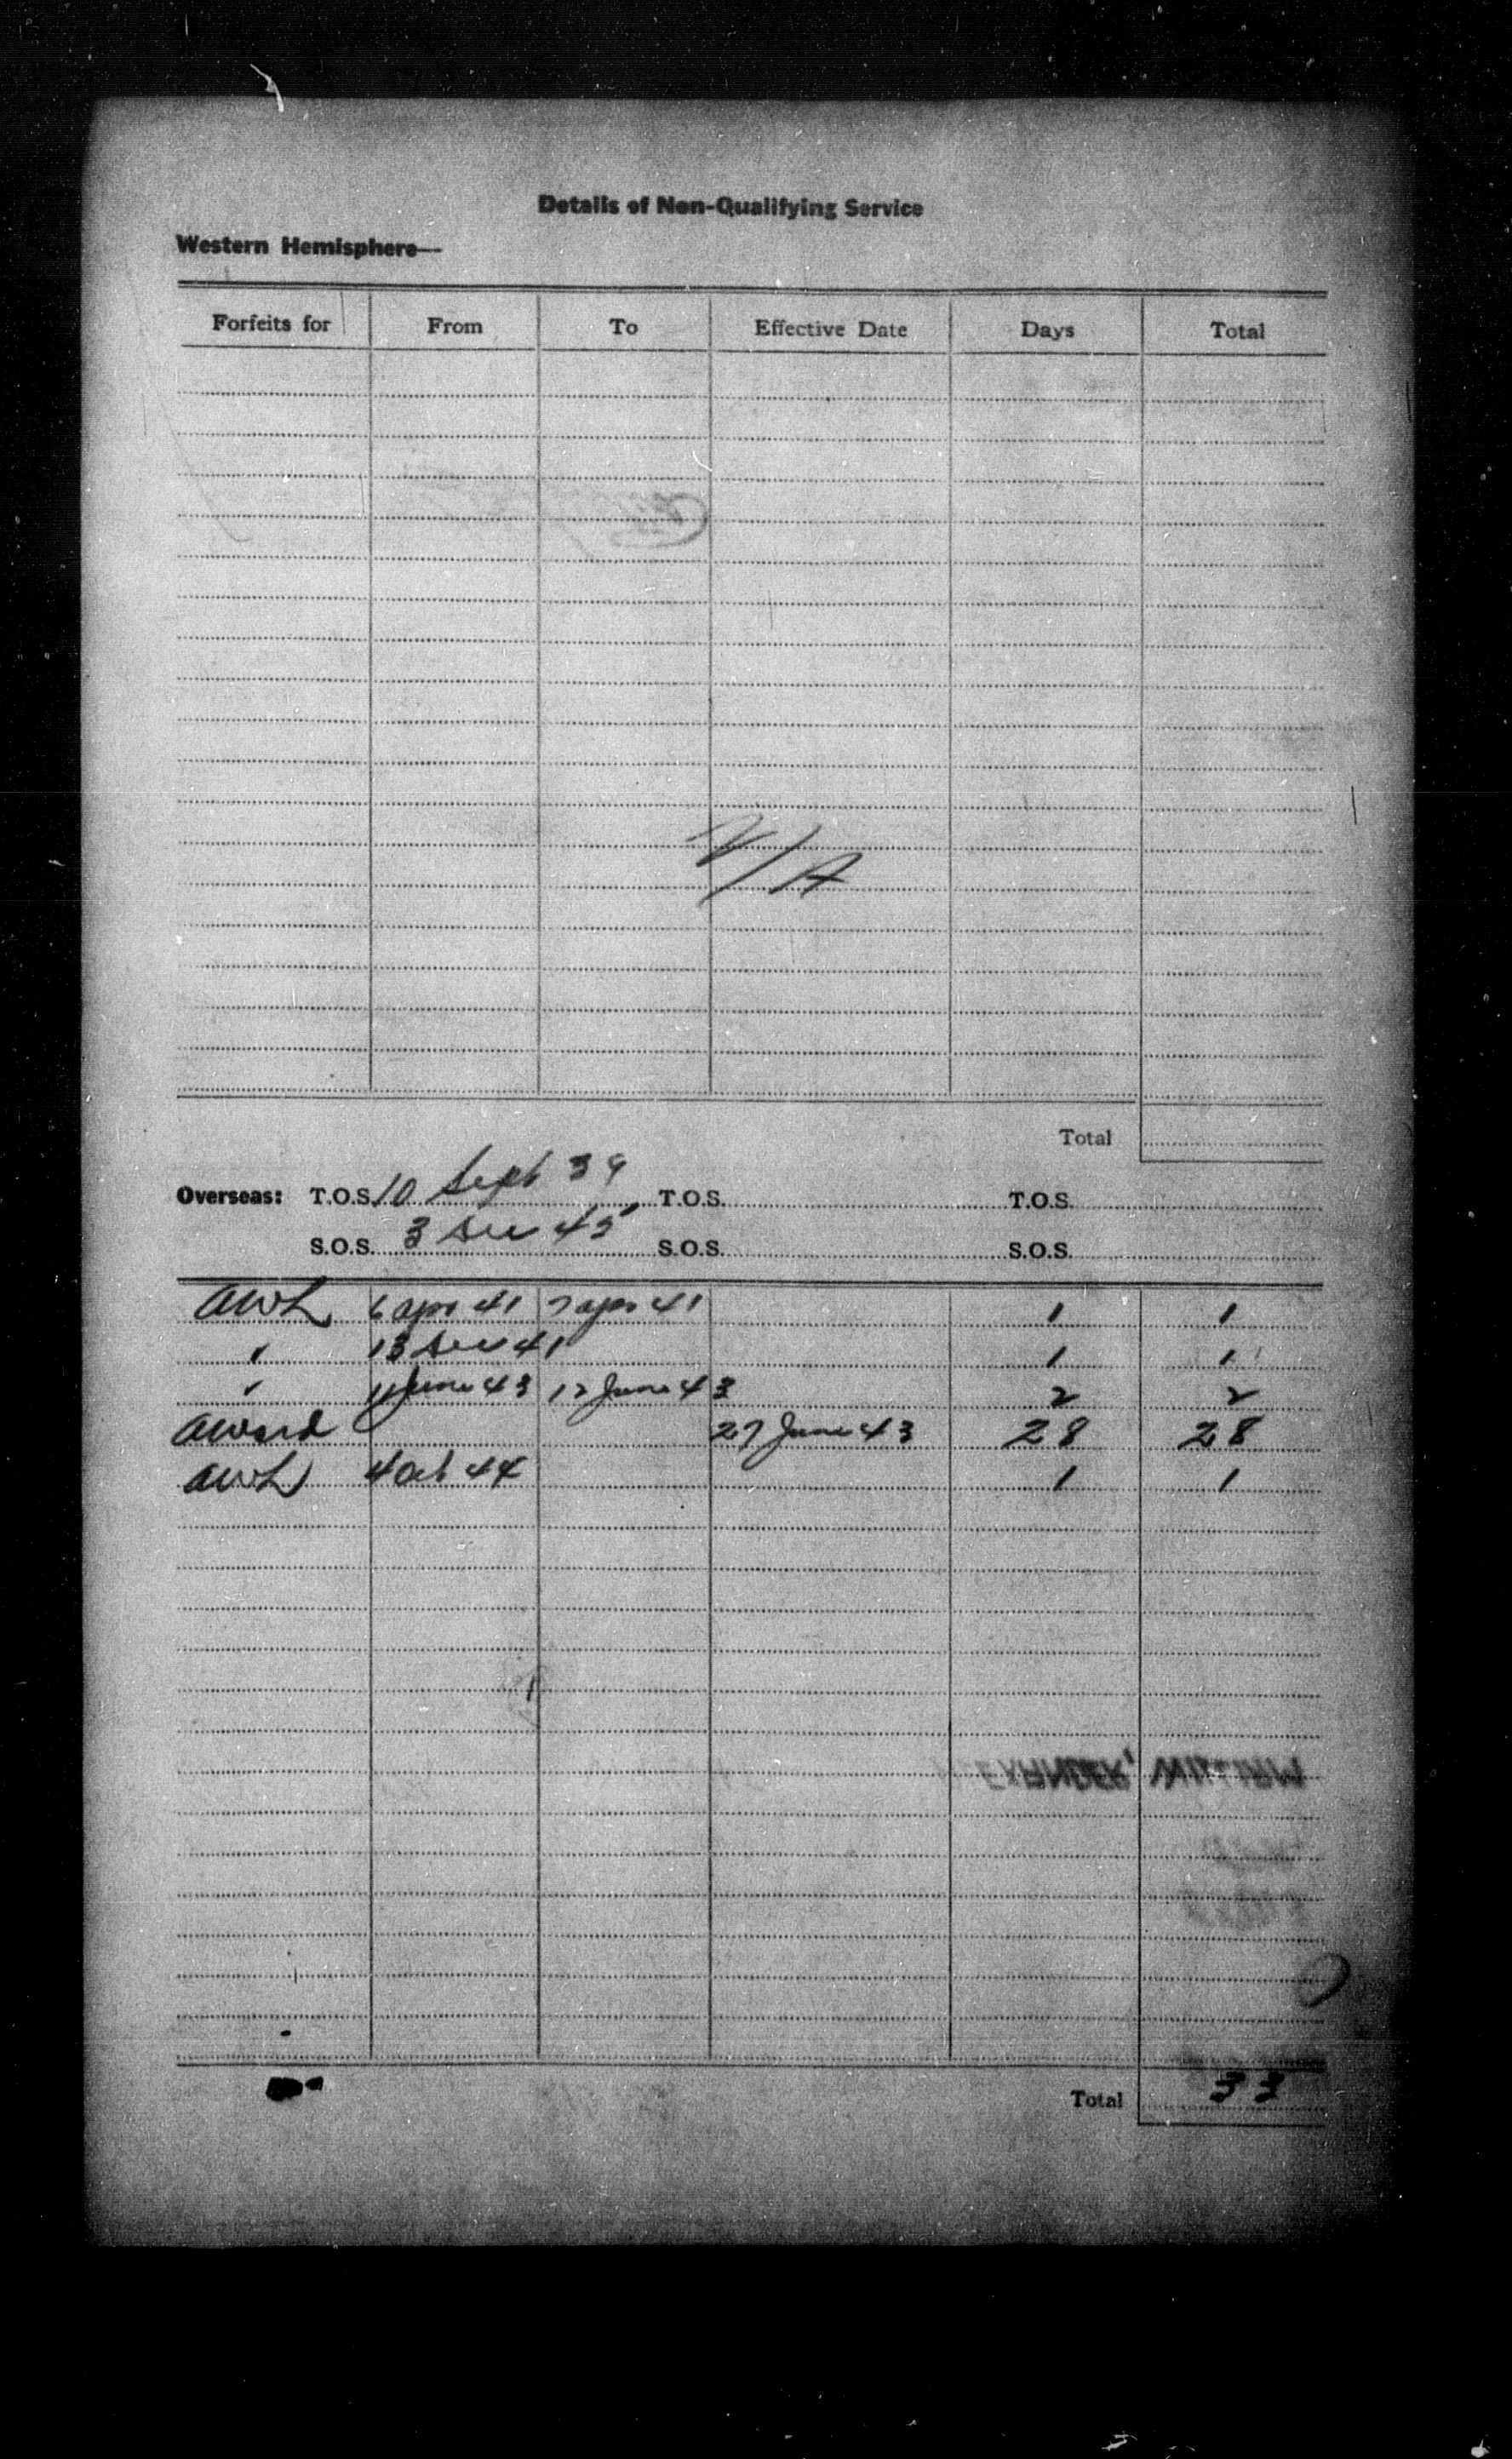 Details of Non-Qualifying Service
Western Hemisphere—
Forfeits for From To Effective Date Days Total
N/A
Total
Overseas: T.O.S. 10 Sept 39 T.O.S. T.O.S.
S.O.S. 3 Dec 45 S.O.S. S.O.S.
AWL 6 Apr 41 7 Apr 41 1 1
" 13 Dec 41 1 1
" 11 June 43 12 June 43 2 2
Award 27 June 43 28 28
AWL 4 Oct 44 1 1
Total 33